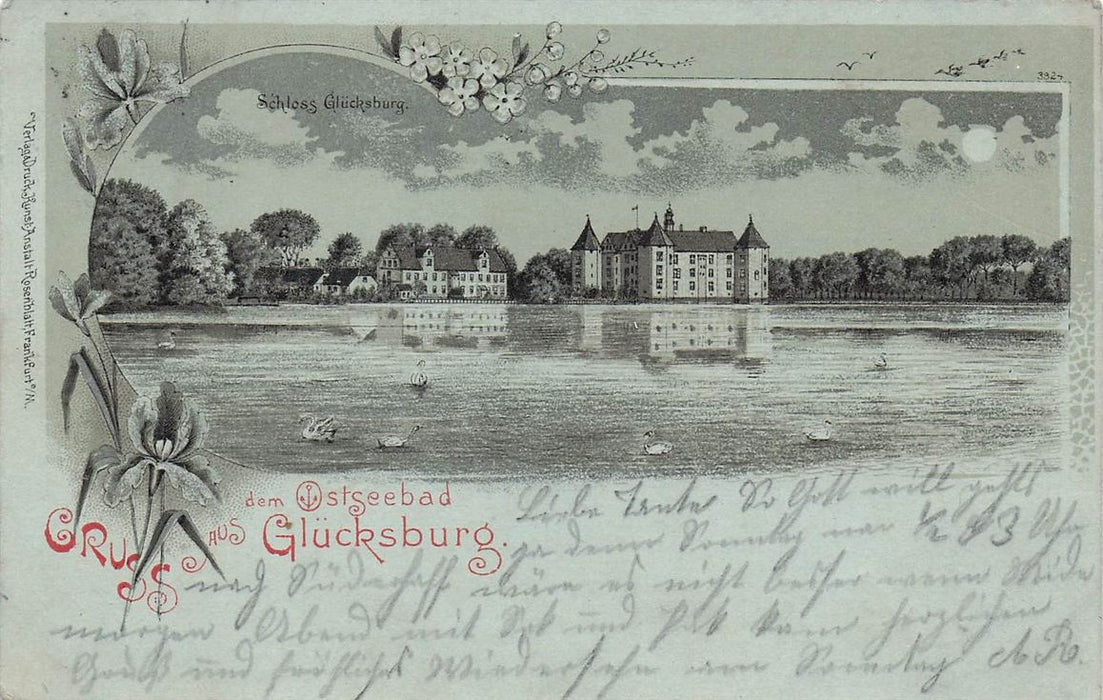 Schloss Glücksburg.
392
Verlag & Druck, Kunst-Anstalt Rosenblatt, Frankfurt a/M.
Gruss aus dem Ostseebad
Glücksburg.
Liebe Tante So Gott will gehts
ja denn Sonntag 1/2 3 Uhr
nach Süderhaff wäre es nicht besser wenn
morgen Abend mit und kam herzlichen
Gruß und fröhliches Wiedersehn am Sonntag A R.